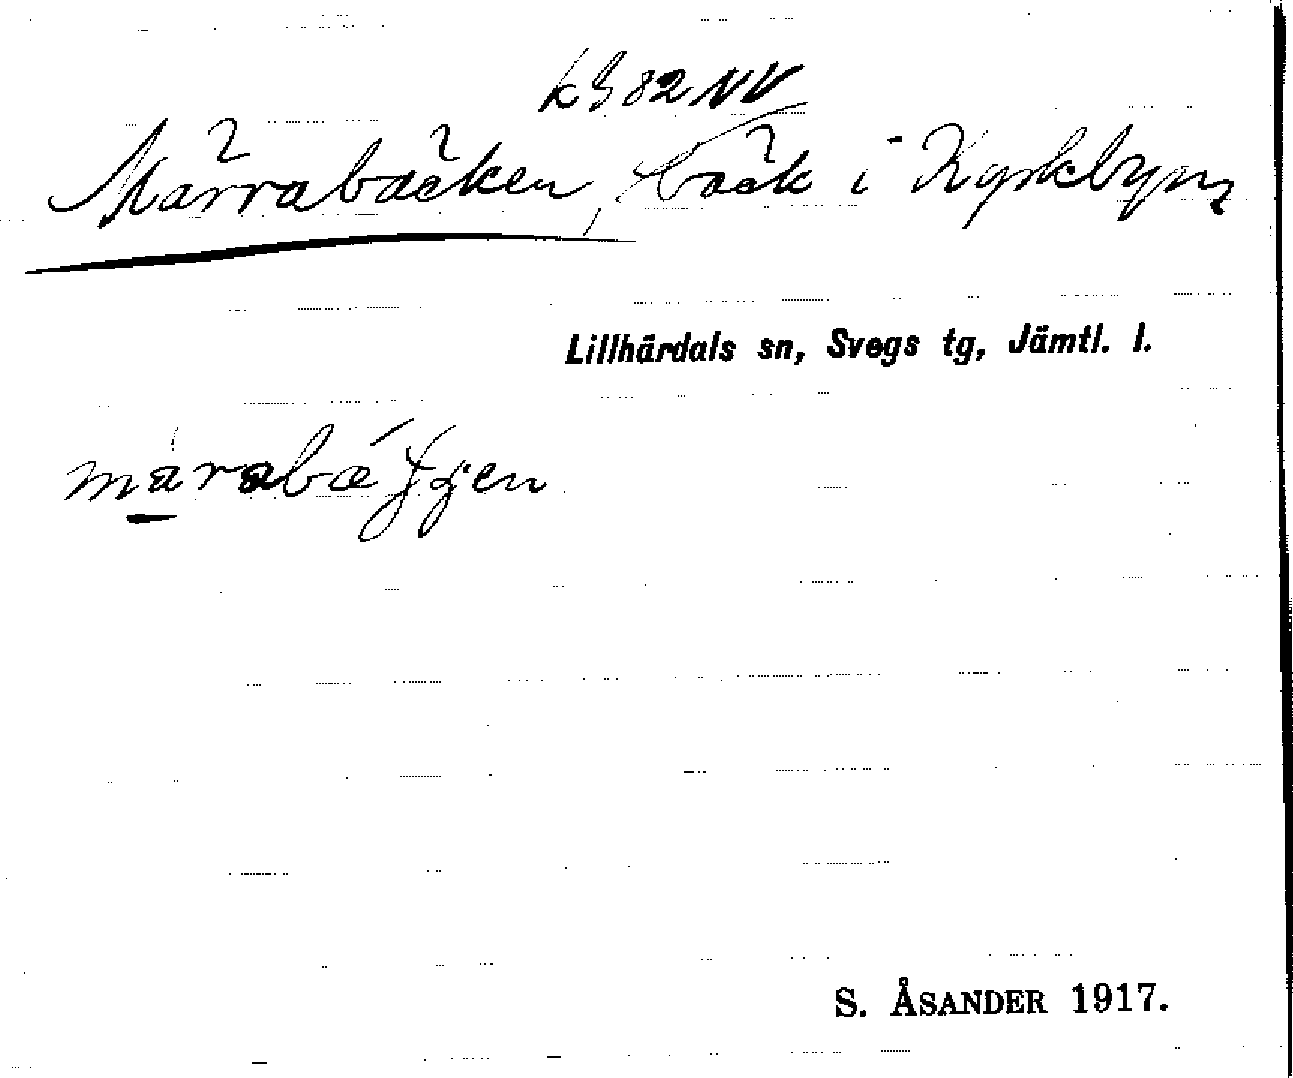 k 82 NV
Märrabäcken, bäck i Kyrkbyn,
Lillhärdals sn, Svegs tg, Jämtl. l.
S. ÅSANDER 1917.